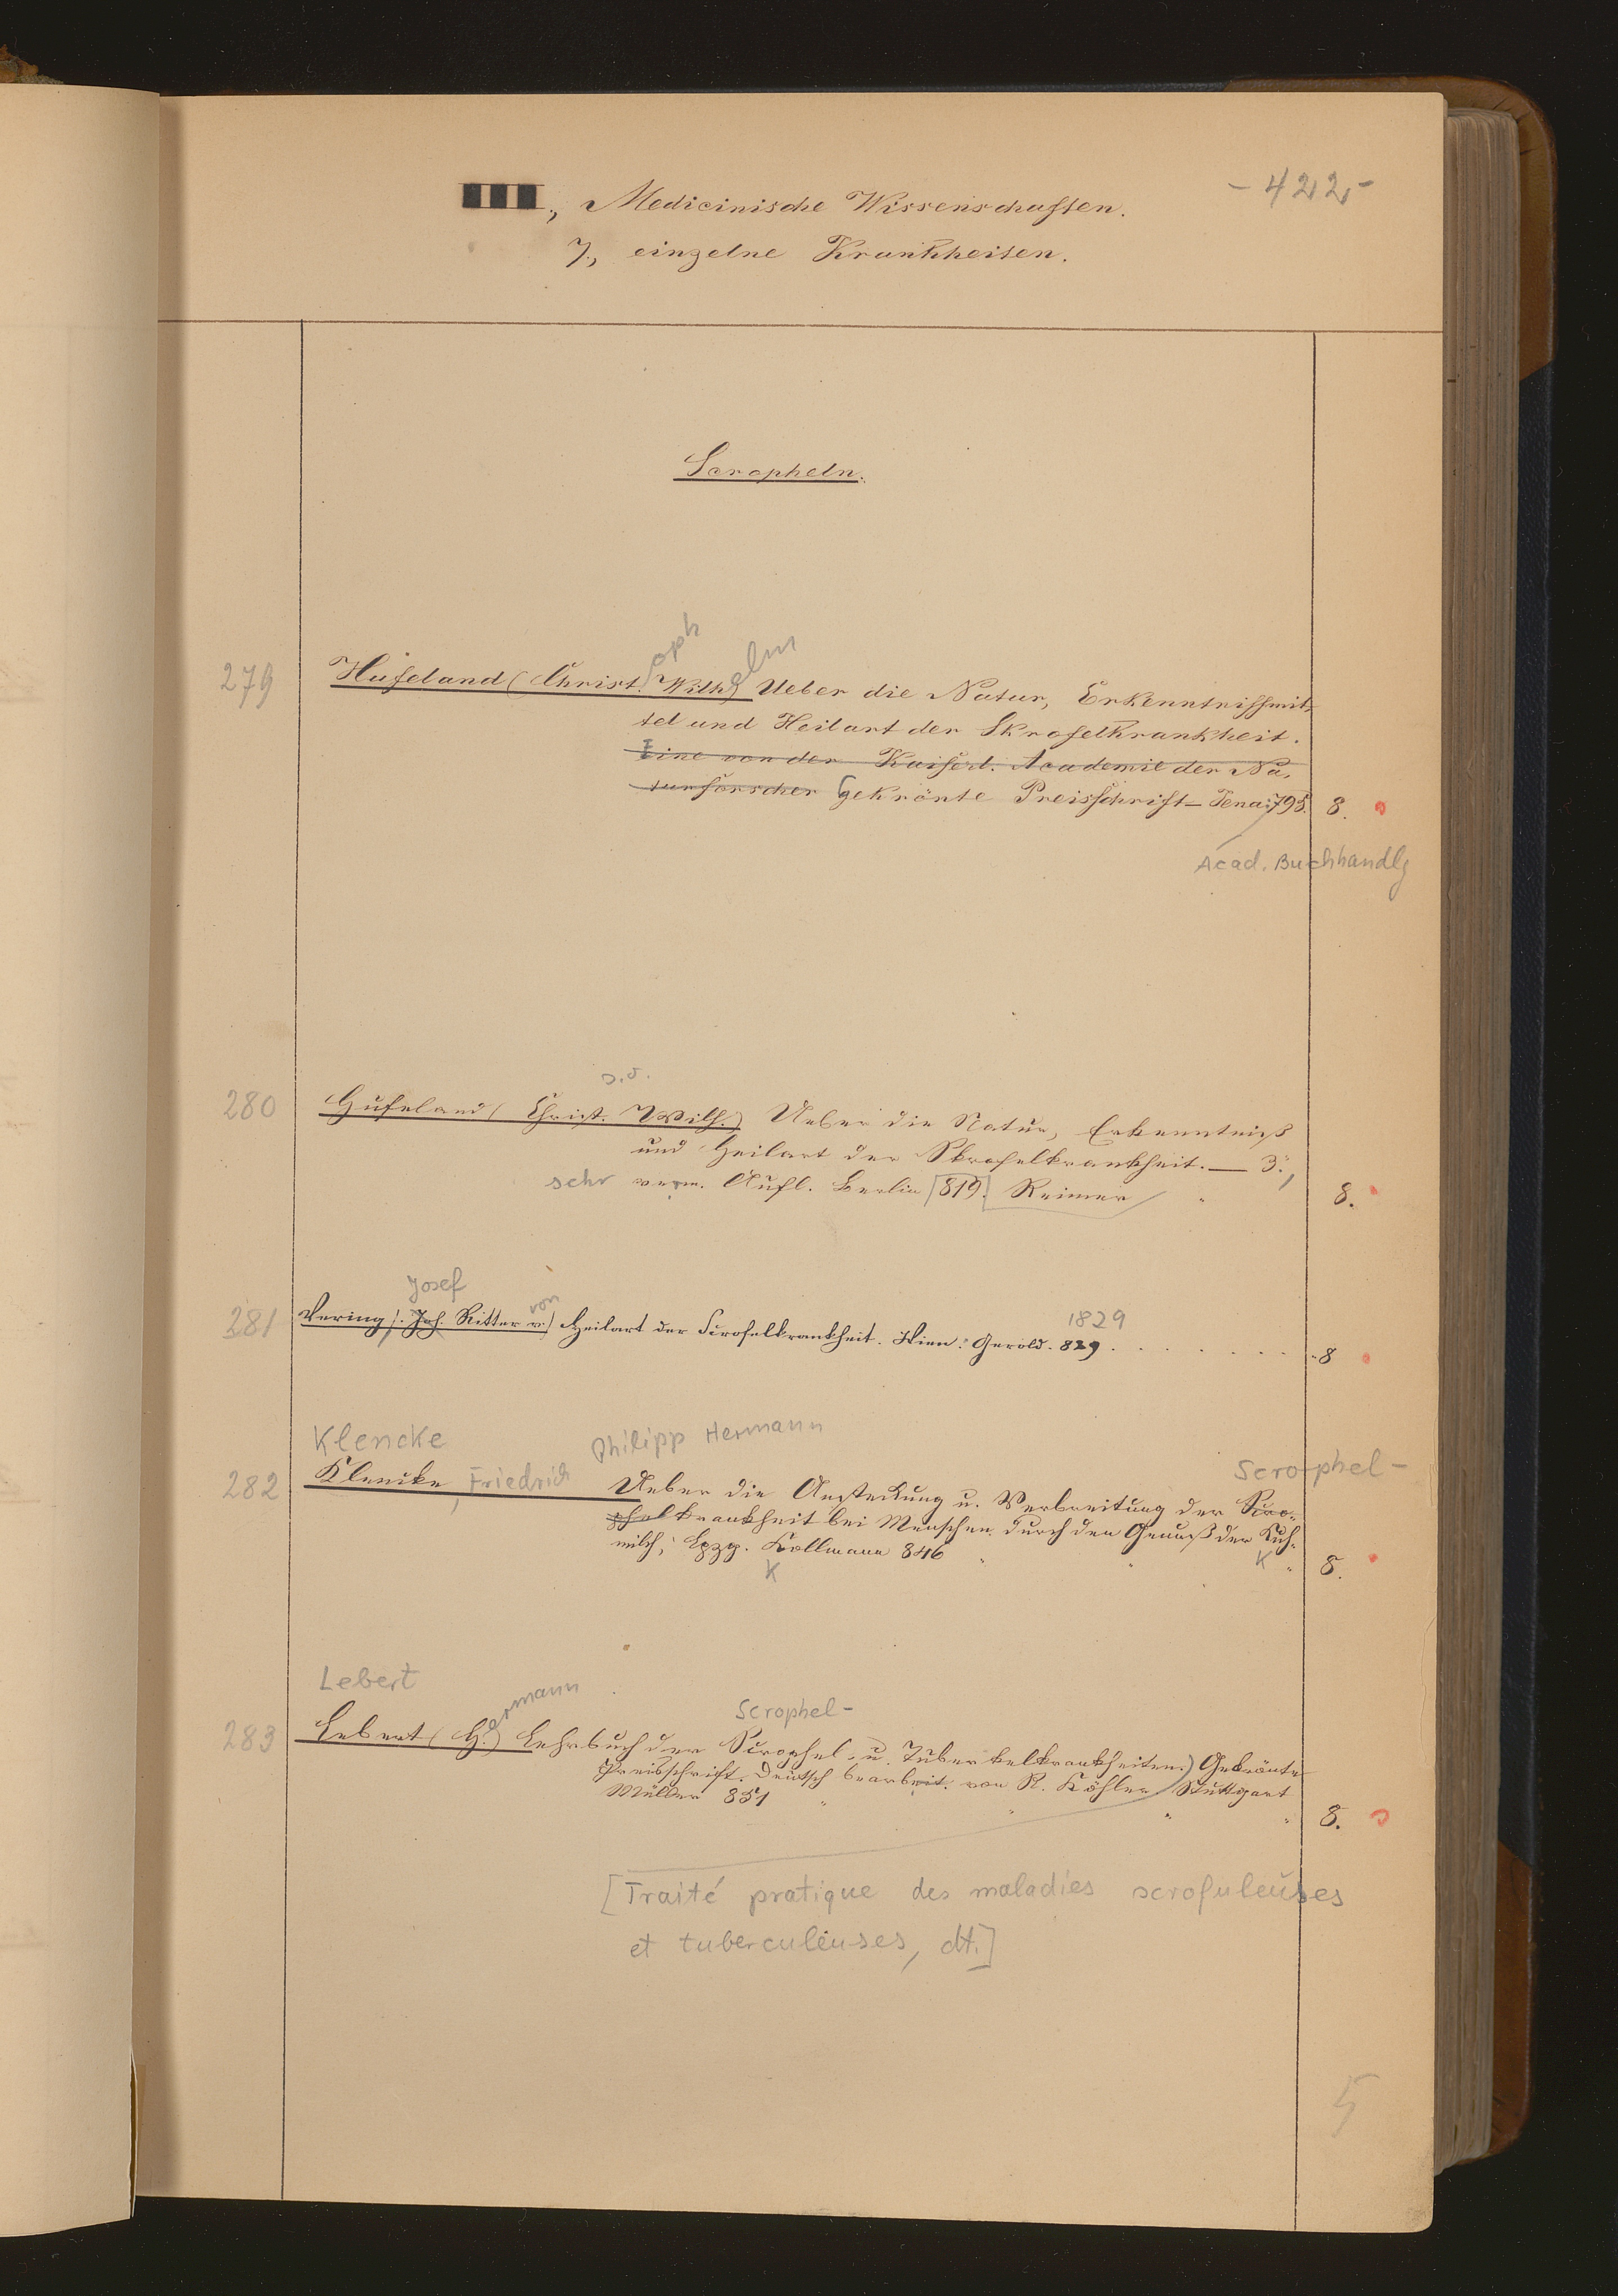 - 422 -
III, Medicinische Wissenschaften.
7., einzelne Krankheiten.
Scropheln.
oph elm
279 Hufeland (Christ. Wilh.) Ueber die Natur, Erkenntnißmit-
tel und Heilart der Skrofelkrankheit.
Eine von der Kaiserl. Academie der Na-
turforscher Gekrönte Preisschrift – Jena: 795. 8.
Acad. Buchhandlg
s.o.
280 Hufeland (Christ. Wilh.) Ueber die Natur, Erkenntniß
und Heilart der Skrofelkrankheit. — 3.,
sehr verm. Aufl. Berlin 819. Reimer 8.
Josef von 1829
281 Vering (Joh. Ritter v.) Heilart der Scrofelkrankheit. Wien: Gerold. 829 . . . . . . . . 8
Klencke Philipp Hermann Scrophel-
282 Klencke, Friedrich Ueber die Ansteckung u. Verbreitung der Scro-
phelkrankheit bei Menschen durch den Genuß der Kuh-
milch, Lpzg. Kollmann 846 " " " 8.
K K
Lebert ermann Scrophel-
283 Lebert (H.) Lehrbuch der Scrophel- u. Tuberkelkrankheiten.) Gekrönte
Preisschrift. Deutsch bearbeit. von R. Köhler Stuttgart
Müller 851 " " " " 8.
[Traité pratique des maladies scrofuleuses
et tuberculeuses, dt.]
5